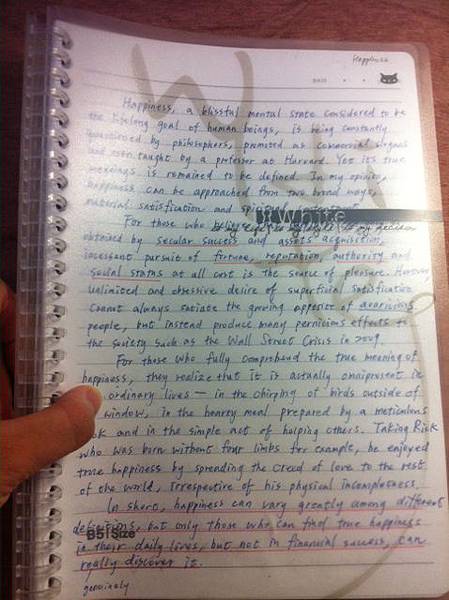 Happiness
DATE
Happiness, a blissful mental state considered to be
the lifelong goal of human beings, is being constantly
questioned by philosophers, promoted as commercial slogans
and even taught by a professor at Harvard. Yet its true
meanings is remained to be defined. In my opinion,
happiness can be approached from two broad ways,
material satisfaction and spiritual
It White
For those who
obtained by secular success and assets acquisition,
incessant pursuit of fortune, reputation, authority and
social status at all cost is the source of pleasure. However,
unlimited and obsessive desire of superficial satisfaction
cannot always satiate the growing appetite of avaricious
people, but instead produce many pernicious effects to
the society such as the Wall Street Crisis in 2009.
For those who fully comprehend the true meaning of
happiness, they realize that it is actually omnipresent in
ordinary lives — in the chirping of birds outside of
window, in the hearty meal prepared by a meticulous
and in the simple act of helping others. Taking Rick
who was born without four limbs for example, he enjoyed
true happiness by spreading the creed of love to the rest
of the world, irrespective of his physical incompleteness.
In short, happiness can vary greatly among different
definitions, but only those who can find true happiness
B5 | Size
in their daily lives, but not in financial success, can
really discover it.
genuinely